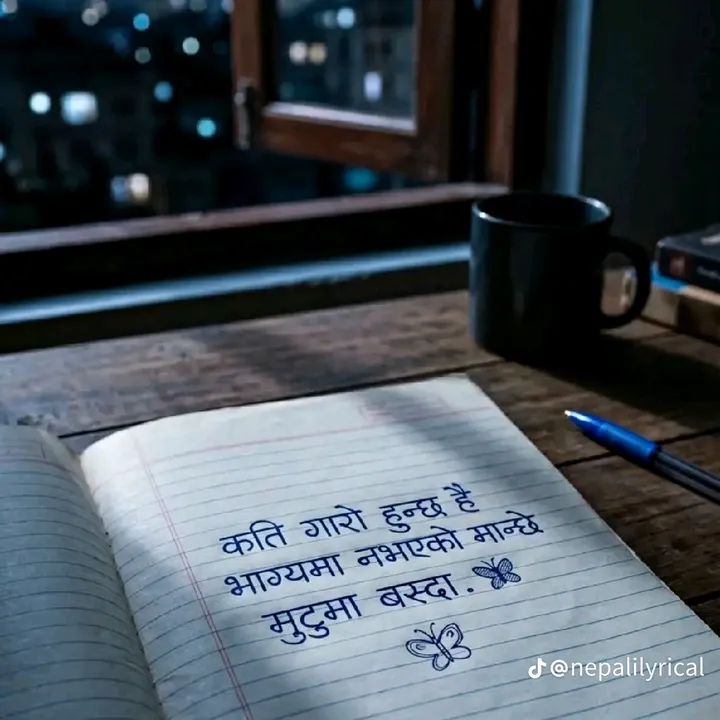 कति गारो हुन्छ है
भाग्यमा नभएको मान्छे
मुटुमा बस्दा.
@nepalilyrical